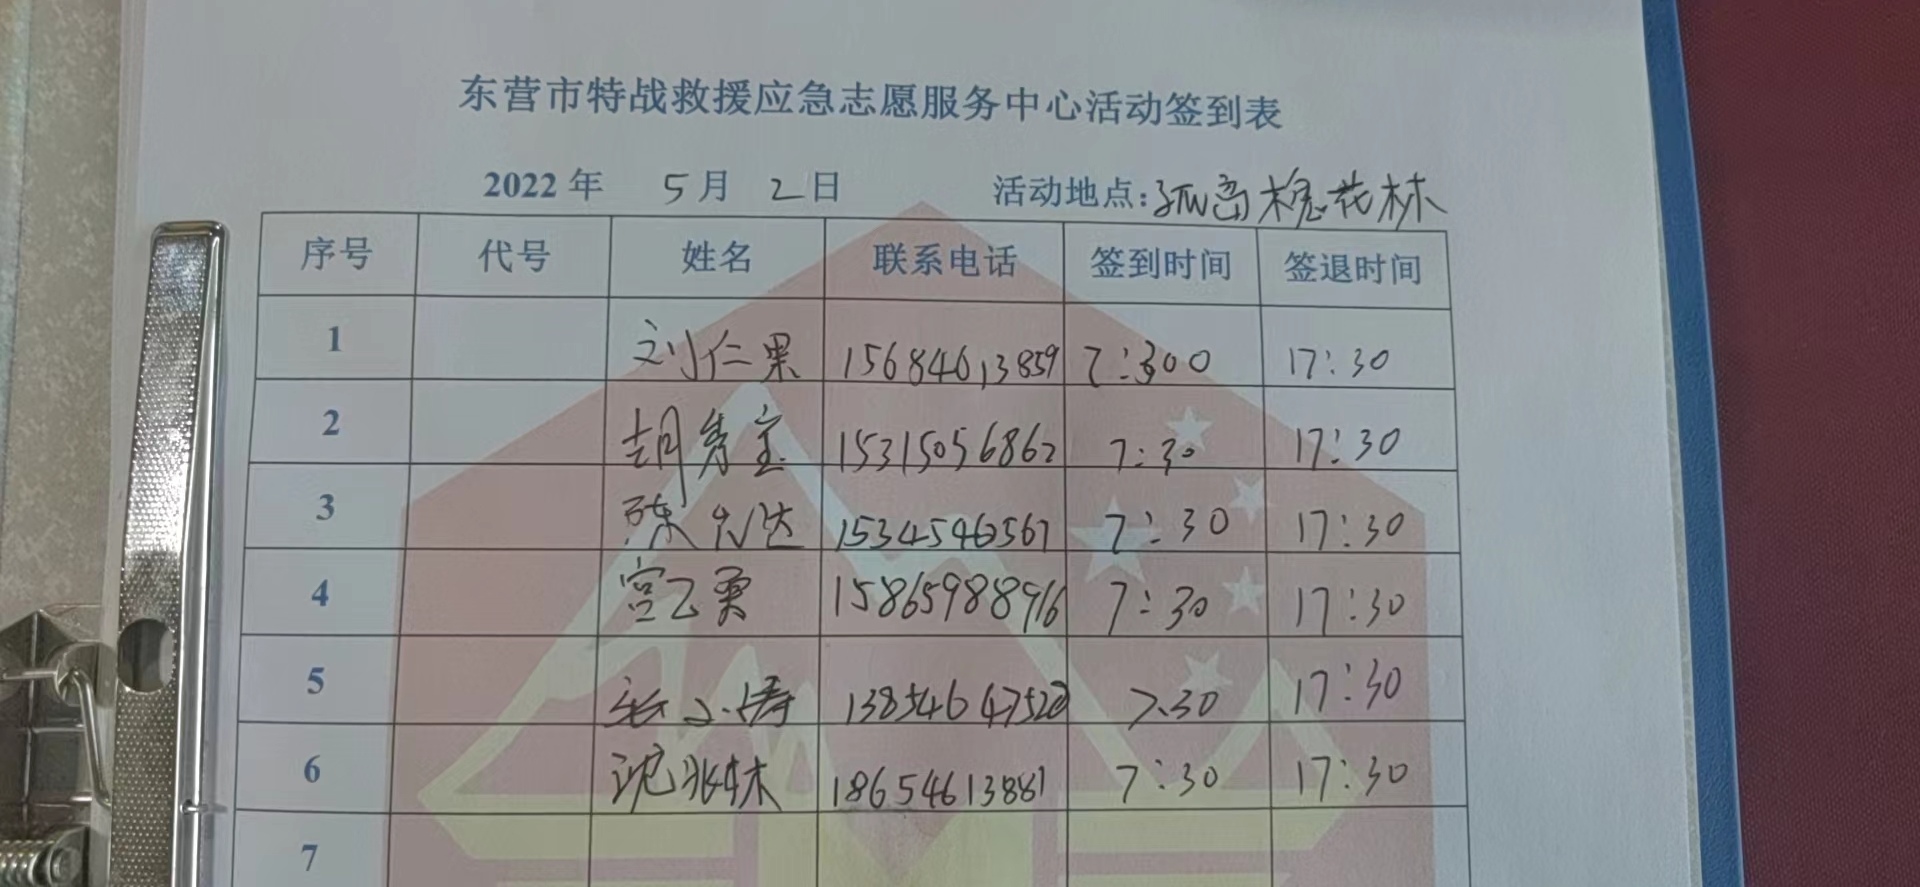 东营市特战救援应急志愿服务中心活动签到表
2022 年 5 月 2 日 活动地点:孤岛槐花林
序号 代号 姓名 联系电话 签到时间 签退时间
1 刘仁果 15684613859 7:300 17:30
2 胡秀宝 15315056862 7:30 17:30
3 陈 15345463567 7:30 17:30
4 宫 15865988916 7:30 17:30
5 13854647528 7:30 17:30
6 沈 18654613881 7:30 17:30
7